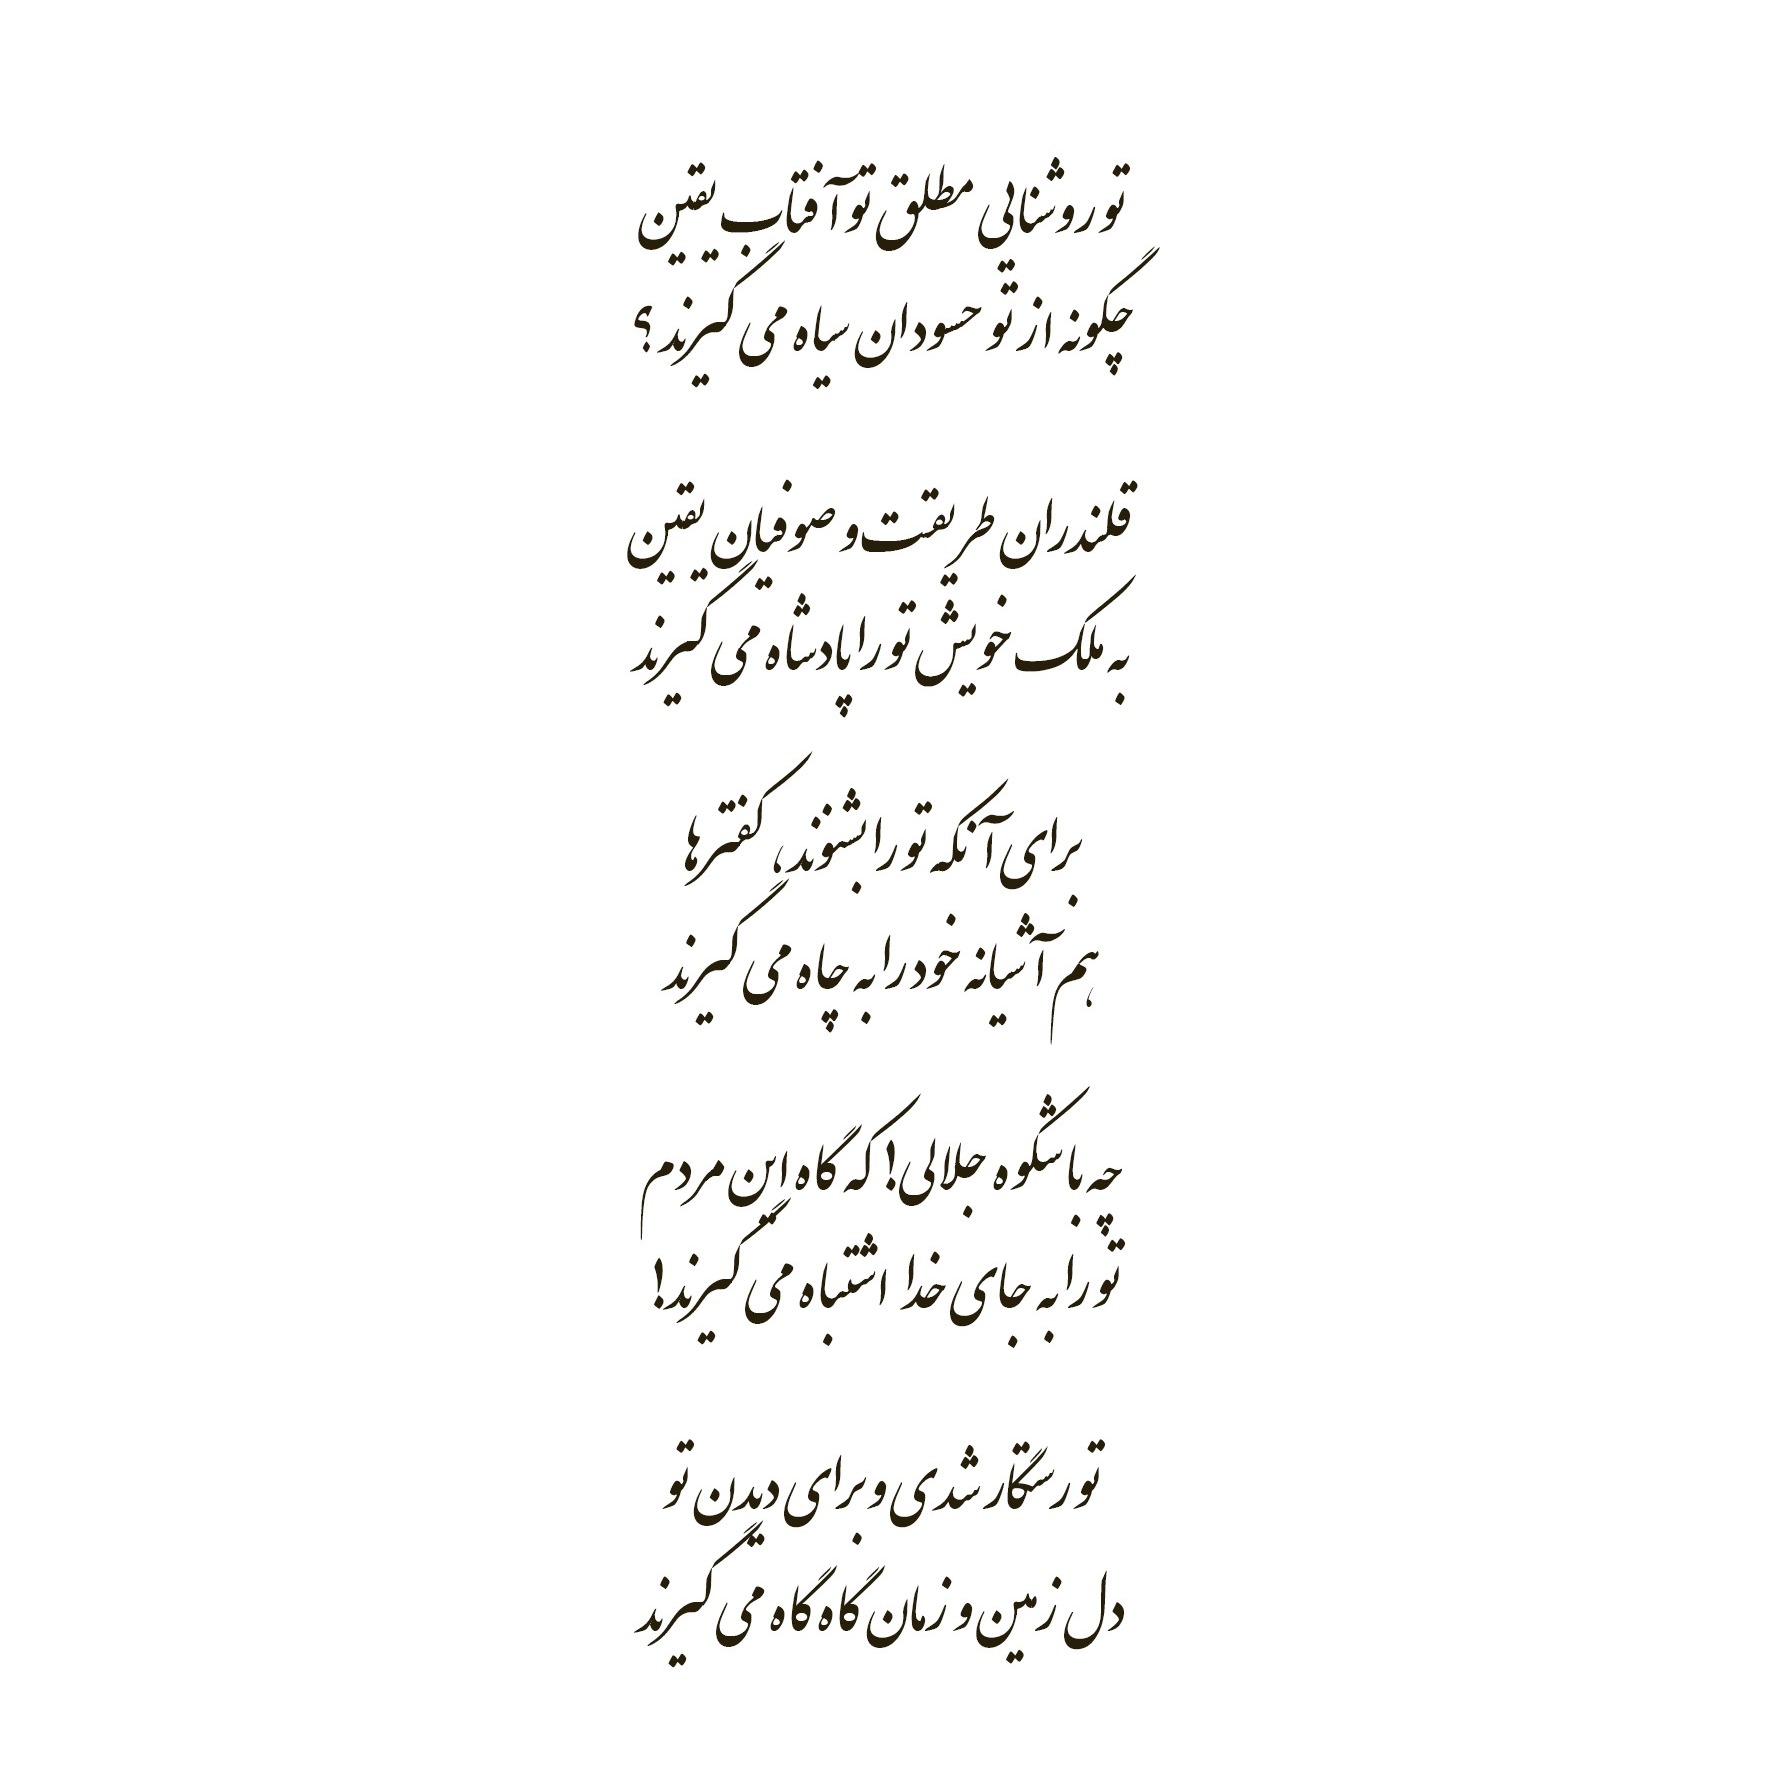 تو روشنایی مطلق تو آفتاب یقین
چگونه از تو حسودان سیاه می گیرند؟
قلندران طریقت و صوفیان یقین
به ملک خویش تو را پادشاه می گیرند
برای آنکه تو را بشنوند، کفترها
هم آشیانه خود را به چاه می گیرند
چه باشکوه جلالی! که گاه این مردم
تو را به جای خدا اشتباه می گیرند!
تو رستگار شدی و برای دیدن تو
دل زمین و زمان گاه گاه می گیرند